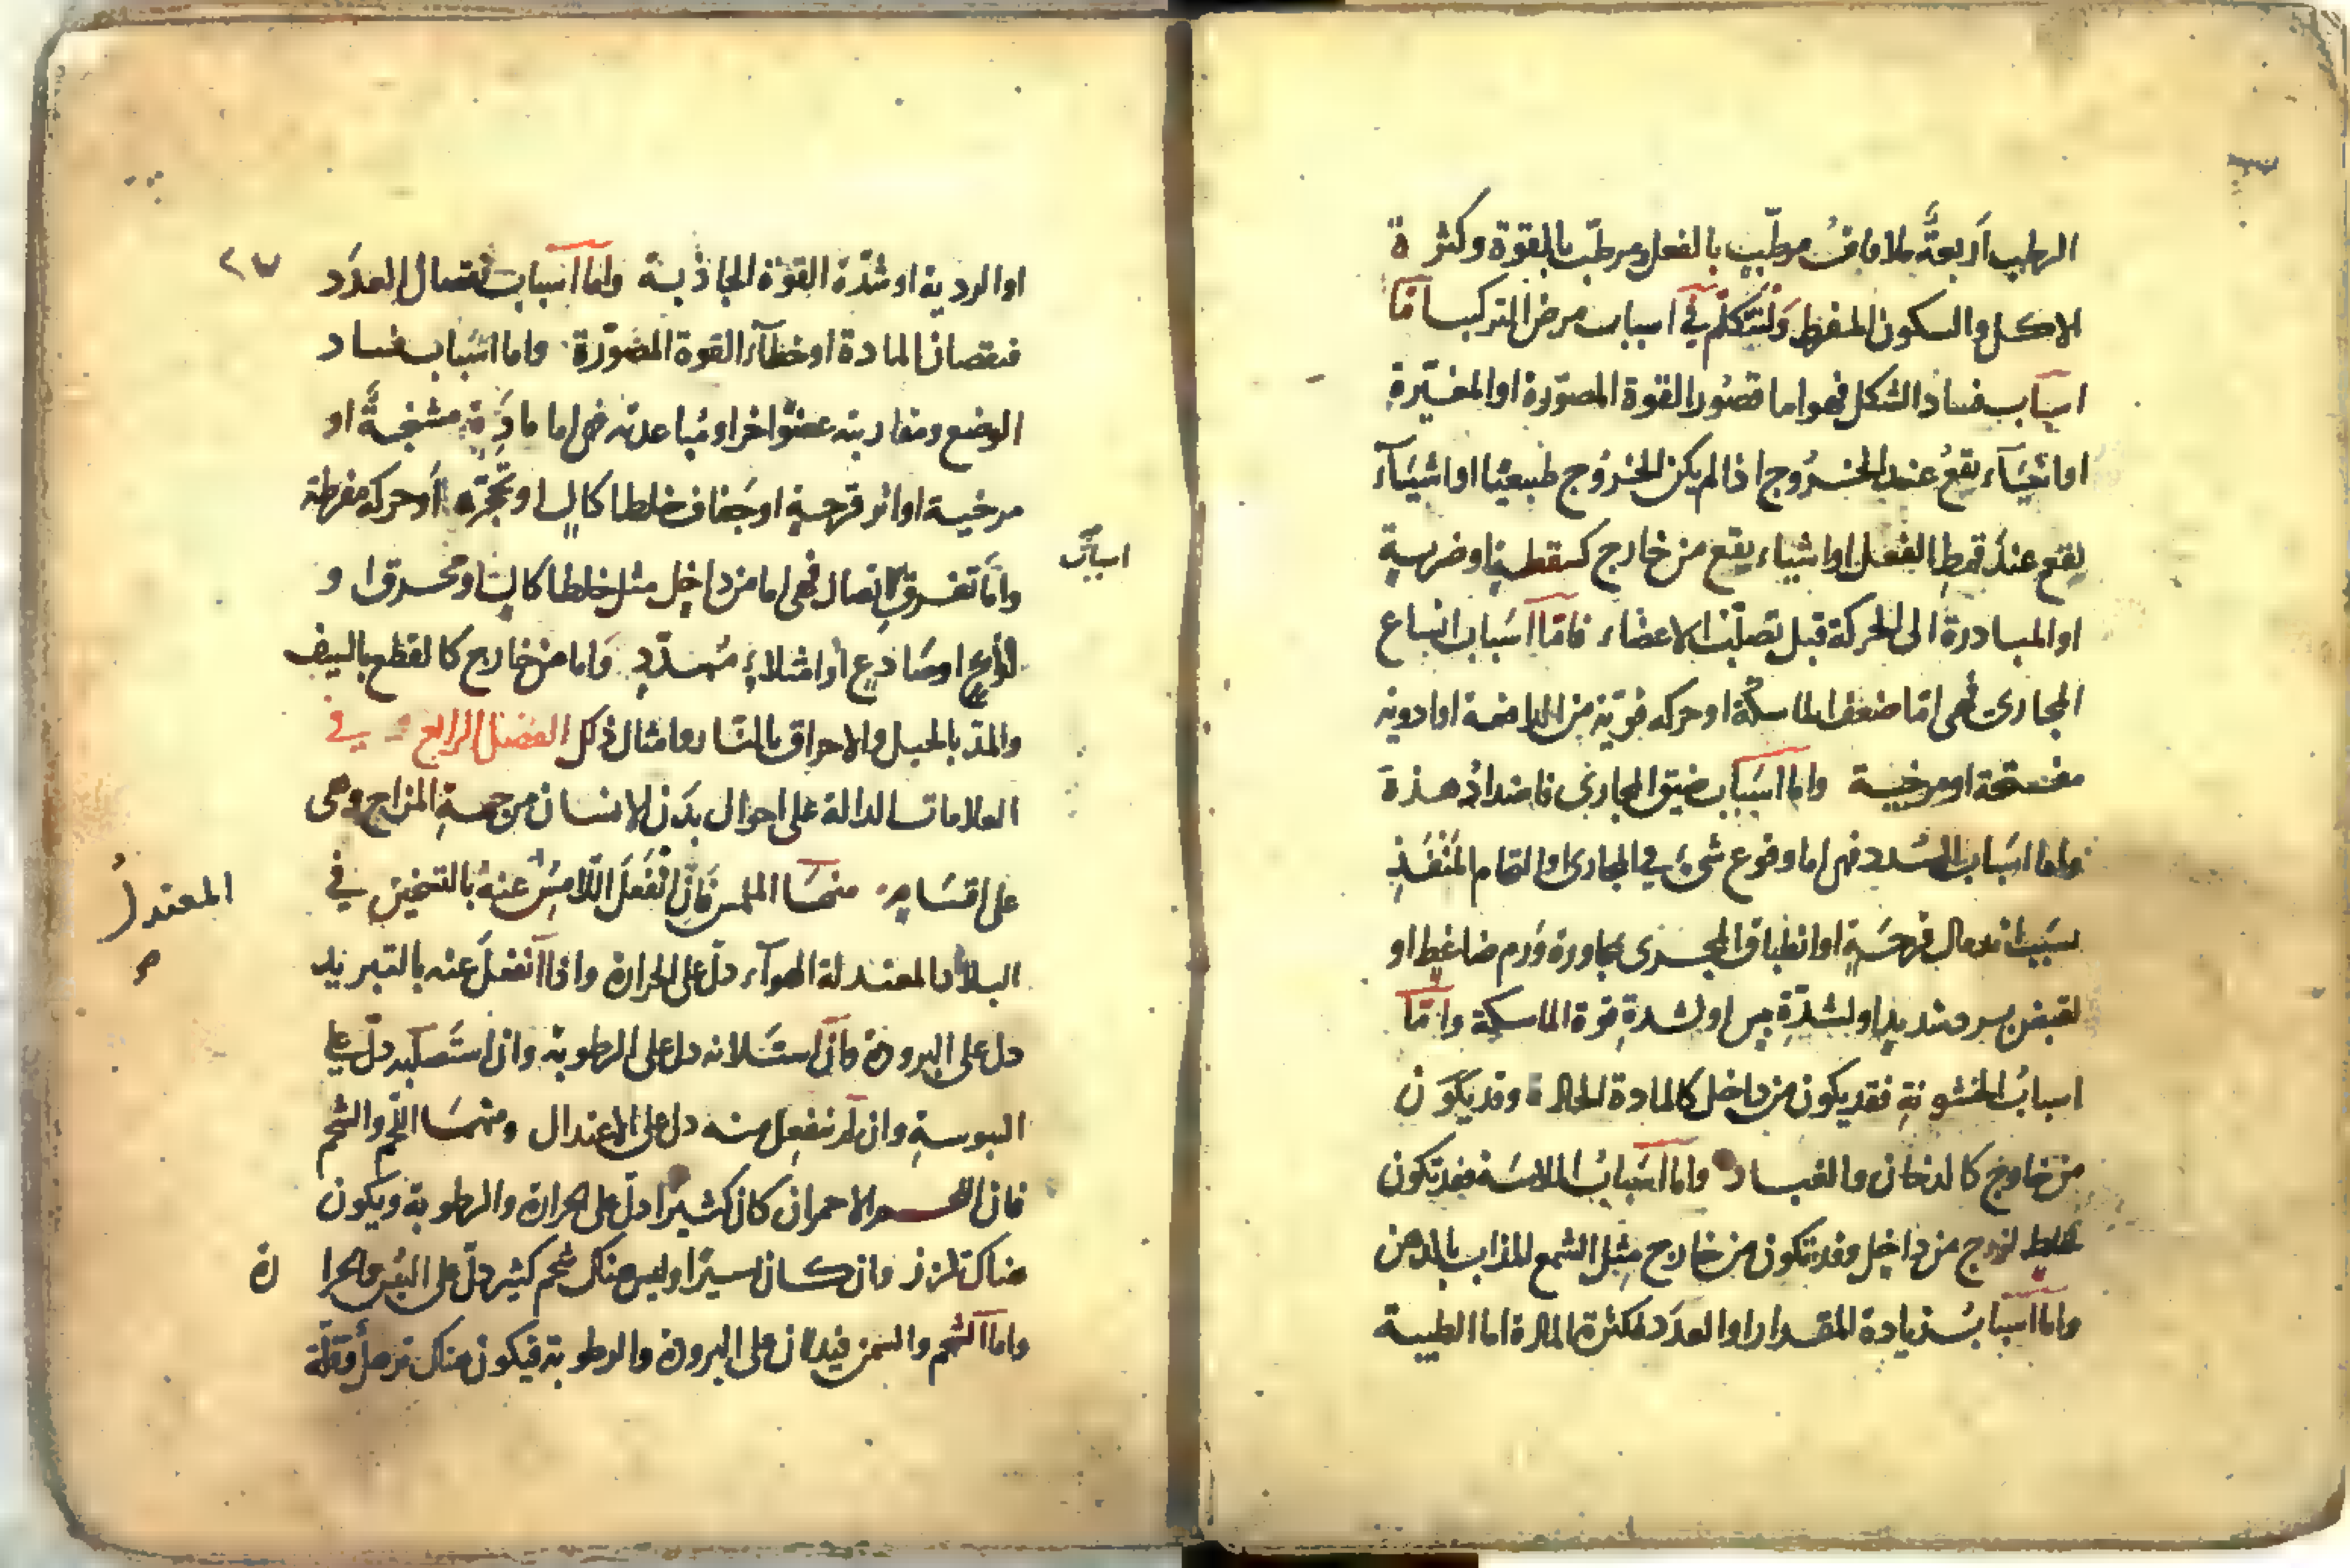 الرطب اربعة ملاقات مرطب بالفعل ومرطب بالقوة وكثرة
الاكل والسكون المفرط ولنتكلم في اسباب مرض التركيب اما
اسباب فساد الشكل فهو اما قصور القوة المصورة او المغيرة
او اشياء يقع عند الخروج اذا لم يكن الخروج طبيعيا او اشياء
يقع عند قمط الطفل او اشياء يقع من خارج كسقطة او ضربة
او المبادرة الى الحركة قبل تصلب الاعضاء فاما اسباب اتساع
المجارى فهى اما ضعف الماسكة او حركه قوية من الدافعة او ادوية
مفتحة او مرخية واما اسباب ضيق المجارى فاضداد هذه
واما اسباب السدد فهى اما وقوع شئ في المجارى او التحام المنفذ
بسبب اندمال قرحة او انطباق المجرى بمجاورة ورم ضاغط او
لقبض برد شديد او لشدة يبس او لشدة قوة الماسكة واما
اسباب الخشونة فقد يكون من داخل كالمادة الحادة وقد يكون
من خارج كالدخان والغبار واما اسباب الملاسة فقد تكون
خلط لزج من داخل وقد تكون من خارج مثل الشمع المذاب بالدهن
واما اسباب زيادة المقدار او العدد فكثرة المادة اما الطيبة
٢٧
او الردية او شدة القوة الجاذبة واما اسباب نقصان العدد
فنقصان المادة او خطآء القوة المصورة واما اسباب فساد
الوضع ومقاربته عضوا اخر او مباعدته فهى اما مادة مشنجة او
مرخية او اثر قرحة او جفاف خلط اكال او تحجره او حركه مفرطة
اسباب
واما تفرق الاتصال فهى اما من داخل مثل خلط اكال او محرق او
لاذع او صادع او امتلاء ممدد واما من خارج كالقطع بالسيف
والمد بالحبل والاحراق بالنار وامثال ذلك الفصل الرابع في
العلامات الدالة على احوال بدن الانسان من جهة المزاج وهى
على اقسام منها الملمس فان انفعل اللامس عنه بالتسخين في
المعتدل
صح
البلاد المعتدلة الهوآء دل على الحرارة واذا انفعل عنه بالتبريد
دل على البرودة وان استلانه دل على الرطوبة وان استصلبه دل على
اليبوسة وان لم ينفعل منه دل على الاعتدال ومنها اللحم والشحم
فان اللحم الاحمر ان كان كثيرا دل على الحرارة والرطوبة ويكون
هناك تلزز وان كان يسيرا وليس هناك شحم كثير دل على اليبس والحرارة
واما الشحم والسمن فيدلان على البرودة والرطوبة فيكون هناك ترهل وقلة